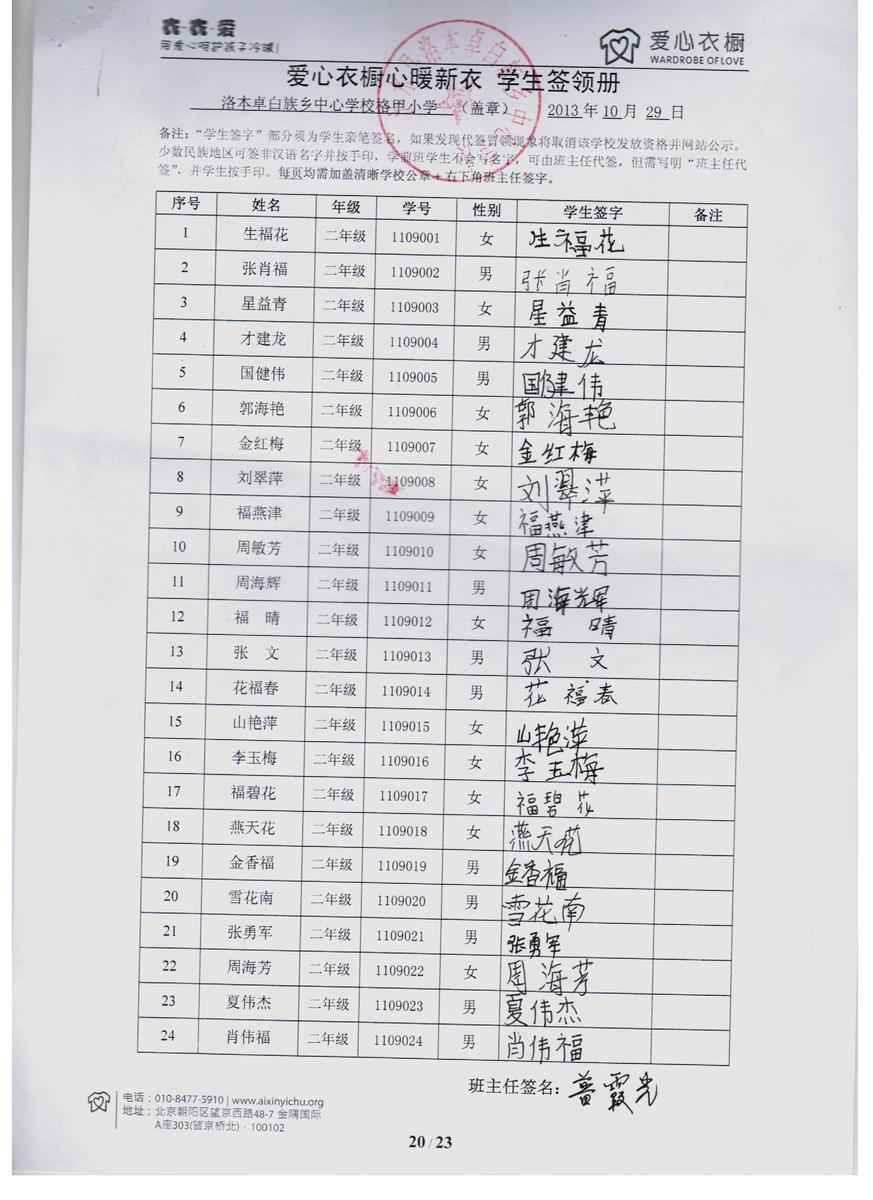 熏·熏·爱
用爱心呵护孩子冷暖!
爱心衣橱
WARDROBE OF LOVE
爱心衣橱心暖新衣 学生签领册
洛本卓白族乡中心学校格甲小学 (盖章) 2013 年 10 月 29 日
备注:“学生签字”部分须为学生亲笔签名,如果发现代签冒领现象将取消该学校发放资格并网站公示。
少数民族地区可签非汉语名字并按手印,学前班学生不会写名字,可由班主任代签,但需写明“班主任代
签”,并学生按手印。每页均需加盖清晰学校公章+右下角班主任签字。
序号 姓名 年级 学号 性别 学生签字 备注
1 生福花 二年级 1109001 女 生福花
2 张肖福 二年级 1109002 男 张肖福
3 星益青 二年级 1109003 女 星益青
4 才建龙 二年级 1109004 男 才建龙
5 国健伟 二年级 1109005 男 国健伟
6 郭海艳 二年级 1109006 女 郭海艳
7 金红梅 二年级 1109007 女 金红梅
8 刘翠萍 二年级 1109008 女 刘翠萍
9 福燕津 二年级 1109009 女 福燕津
10 周敏芳 二年级 1109010 女 周敏芳
11 周海辉 二年级 1109011 男 周海辉
12 福 晴 二年级 1109012 女 福 晴
13 张 文 二年级 1109013 男 张 文
14 花福春 二年级 1109014 男 花福春
15 山艳萍 二年级 1109015 女 山艳萍
16 李玉梅 二年级 1109016 女 李玉梅
17 福碧花 二年级 1109017 女 福碧花
18 燕天花 二年级 1109018 女 燕天花
19 金香福 二年级 1109019 男 金香福
20 雪花南 二年级 1109020 男 雪花南
21 张勇军 二年级 1109021 男 张勇军
22 周海芳 二年级 1109022 女 周海芳
23 夏伟杰 二年级 1109023 男 夏伟杰
24 肖伟福 二年级 1109024 男 肖伟福
班主任签名:
电话:010-8477-5910 | www.aixinyichu.org
地址:北京朝阳区望京西路48-7 金隅国际
A座303(望京桥北)·100102
20 / 23